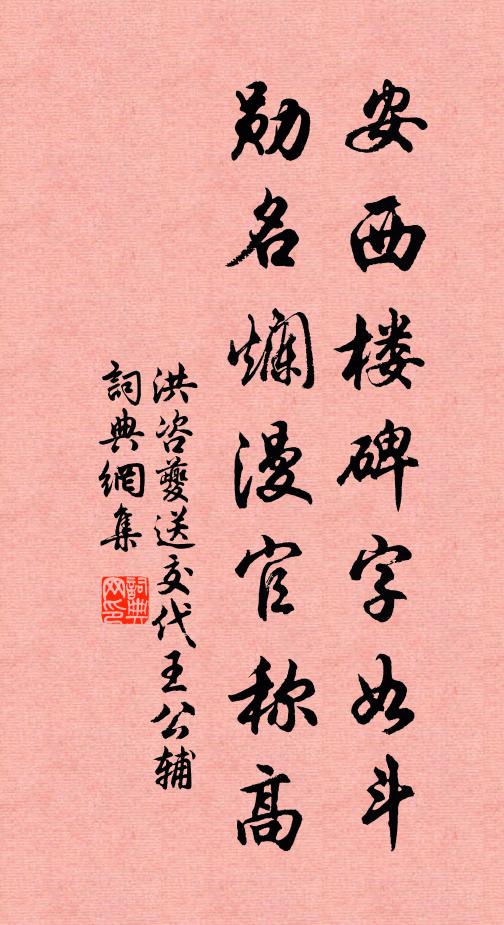 安西楼碑字如斗
勋名爛漫官称高
洪咨夔送交代王公辅
詞典網集
詞典网印